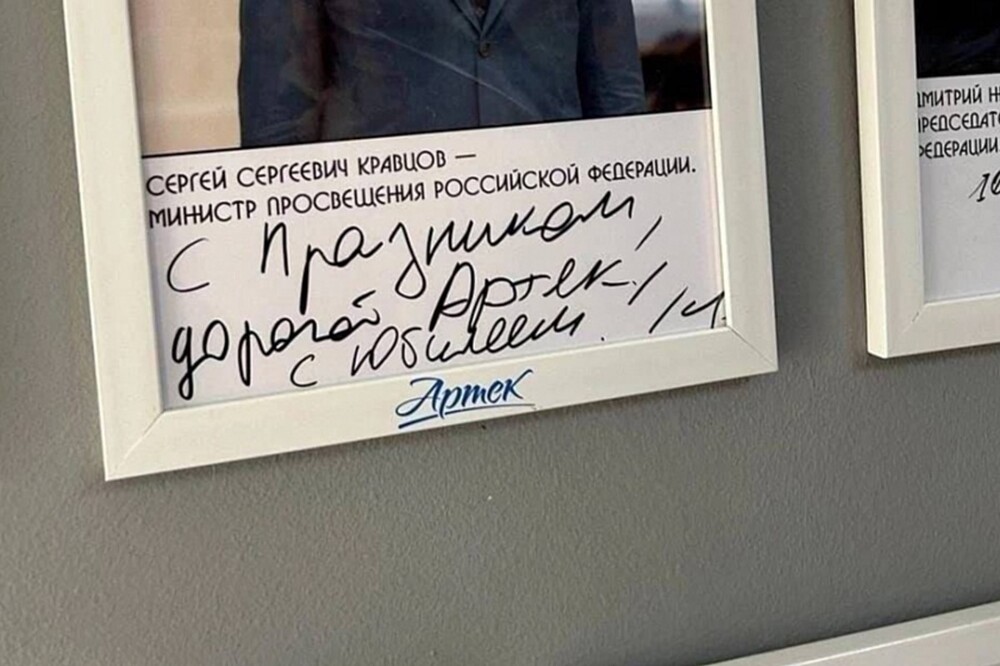 СЕРГЕЙ СЕРГЕЕВИЧ КРАВЦОВ —
МИНИСТР ПРОСВЕЩЕНИЯ РОССИЙСКОЙ ФЕДЕРАЦИИ.
С Празником,
дорогой Артек!
с Юбилеем!
Артек
ДМИТРИЙ
ФЕДЕРАЦИИ